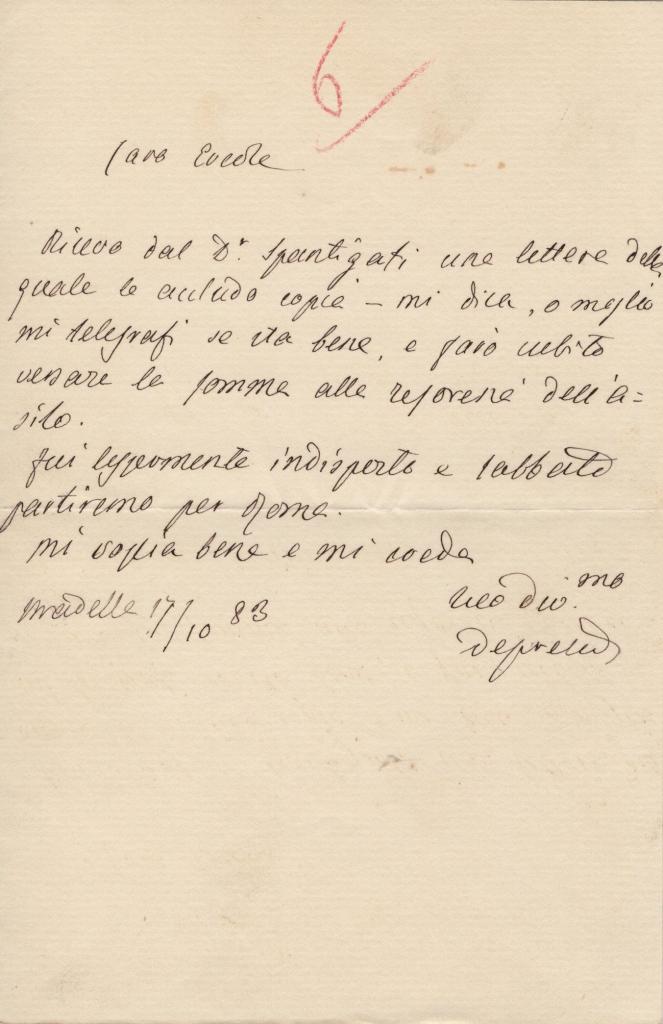 6/
Caro Ercole
Ricevo dal Dr. Spantigati una lettera della
quale le accludo copia – mi dica, o meglio
mi telegrafi se sta bene, e farò subito
versare la somma alla tesoreria dell'a=
silo.
Fui leggermente indisposto e sabbato
partiremo per Roma.
Mi voglia bene e mi creda
Stradella 17/10 83
Suo div.mo
Depretis